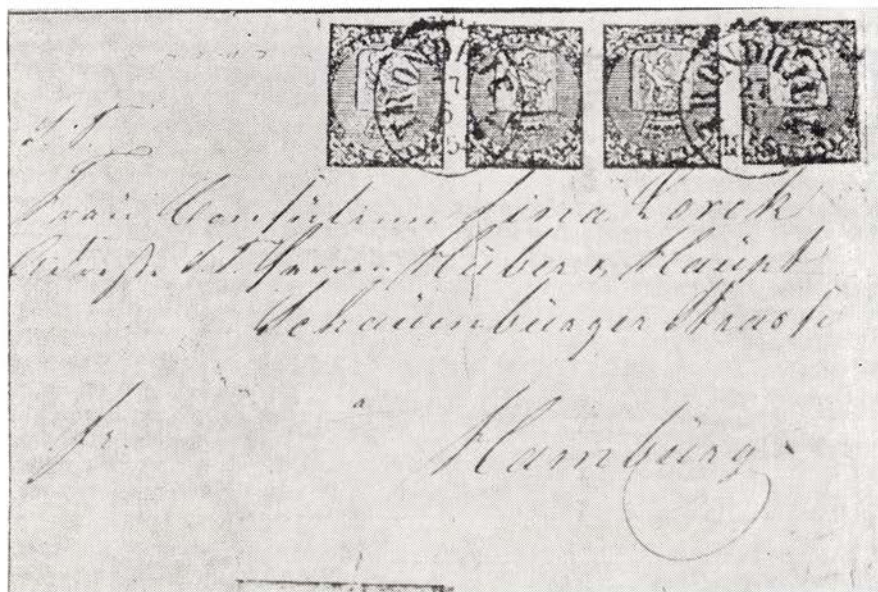 TRONDHJEM TRONDHJEM
S. T.
Frau Consulinn Lina Lorck
Adresse S. T. Herren Hüber & Haupt
Schauenbürger Strasse
fr. a Hambürg.